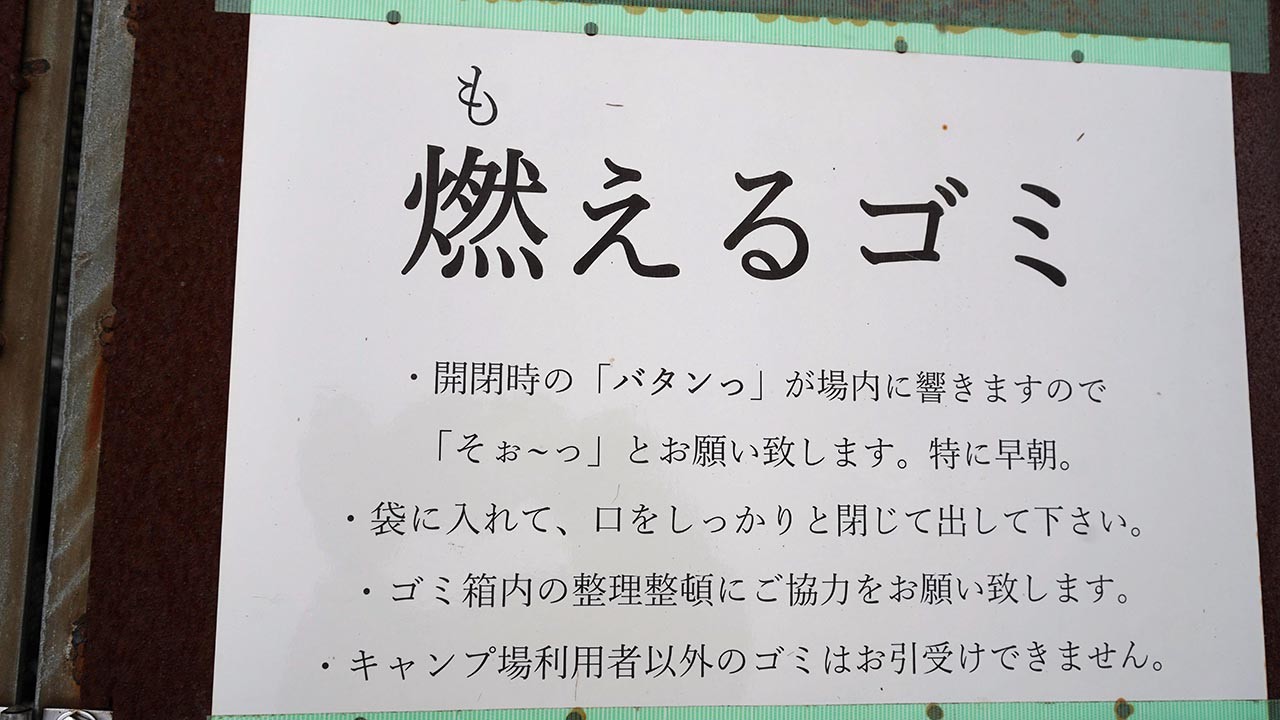 も
燃えるゴミ
・開閉時の「バタンっ」が場内に響きますので
「そぉ~っ」とお願い致します。特に早朝。
・袋に入れて、口をしっかりと閉じて出して下さい。
・ゴミ箱内の整理整頓にご協力をお願い致します。
・キャンプ場利用者以外のゴミはお引受けできません。